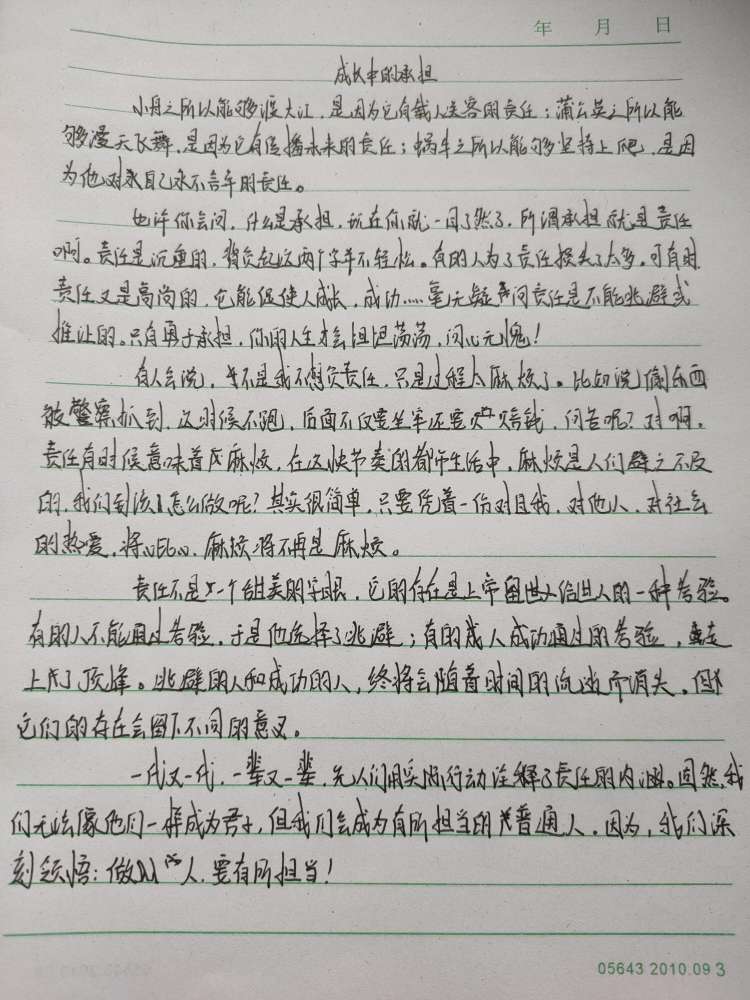 年 月 日
成长中的承担
小舟之所以能够渡大江，是因为它有载人送客的责任；蒲公英之所以能
够漫天飞舞，是因为它有传播未来的责任；蜗牛之所以能够坚持上爬，是因
为他对永自己永不言弃的责任。
也许你会问，什么是承担，现在你就一目了然了，所谓承担就是责任
啊。责任是沉重的，背负起这两个字并不轻松。有的人为了责任损失了太多，可有时
责任又是高尚的，它能促使人成长，成功……毫无疑问责任是不能逃避或
推让的。只有勇于承担，你的人生才会坦坦荡荡，问心无愧！
有人会说，并不是我不想负责任，只是过程太麻烦了。比如说偷东西
被警察抓到，这时候不跑，后面不仅要坐牢还要赔钱，何苦呢？对啊，
责任有时候意味着麻烦，在这快节奏的都市生活中，麻烦是人们避之不及
的，我们到该怎么做呢？其实很简单，只要凭着一份对自我，对他人，对社会
的热爱，将心比心，麻烦将不再是麻烦。
责任不是一个甜美的字眼，它的存在是上帝留给世人的一种考验。
有的人不能通过考验，于是他选择了逃避；有的成人成功通过的考验，走
上了顶峰。逃避的人和成功的人，终将会随着时间的流逝而消失，但
它们的存在会留下不同的意义。
一代又一代，一辈又一辈，先人们用实际行动诠释了责任的内涵。固然，我
们无法像他们一样成为君子，但我们会成为有所担当的普通人，因为，我们深
刻领悟：做人，要有所担当！
05643 2010.09 3